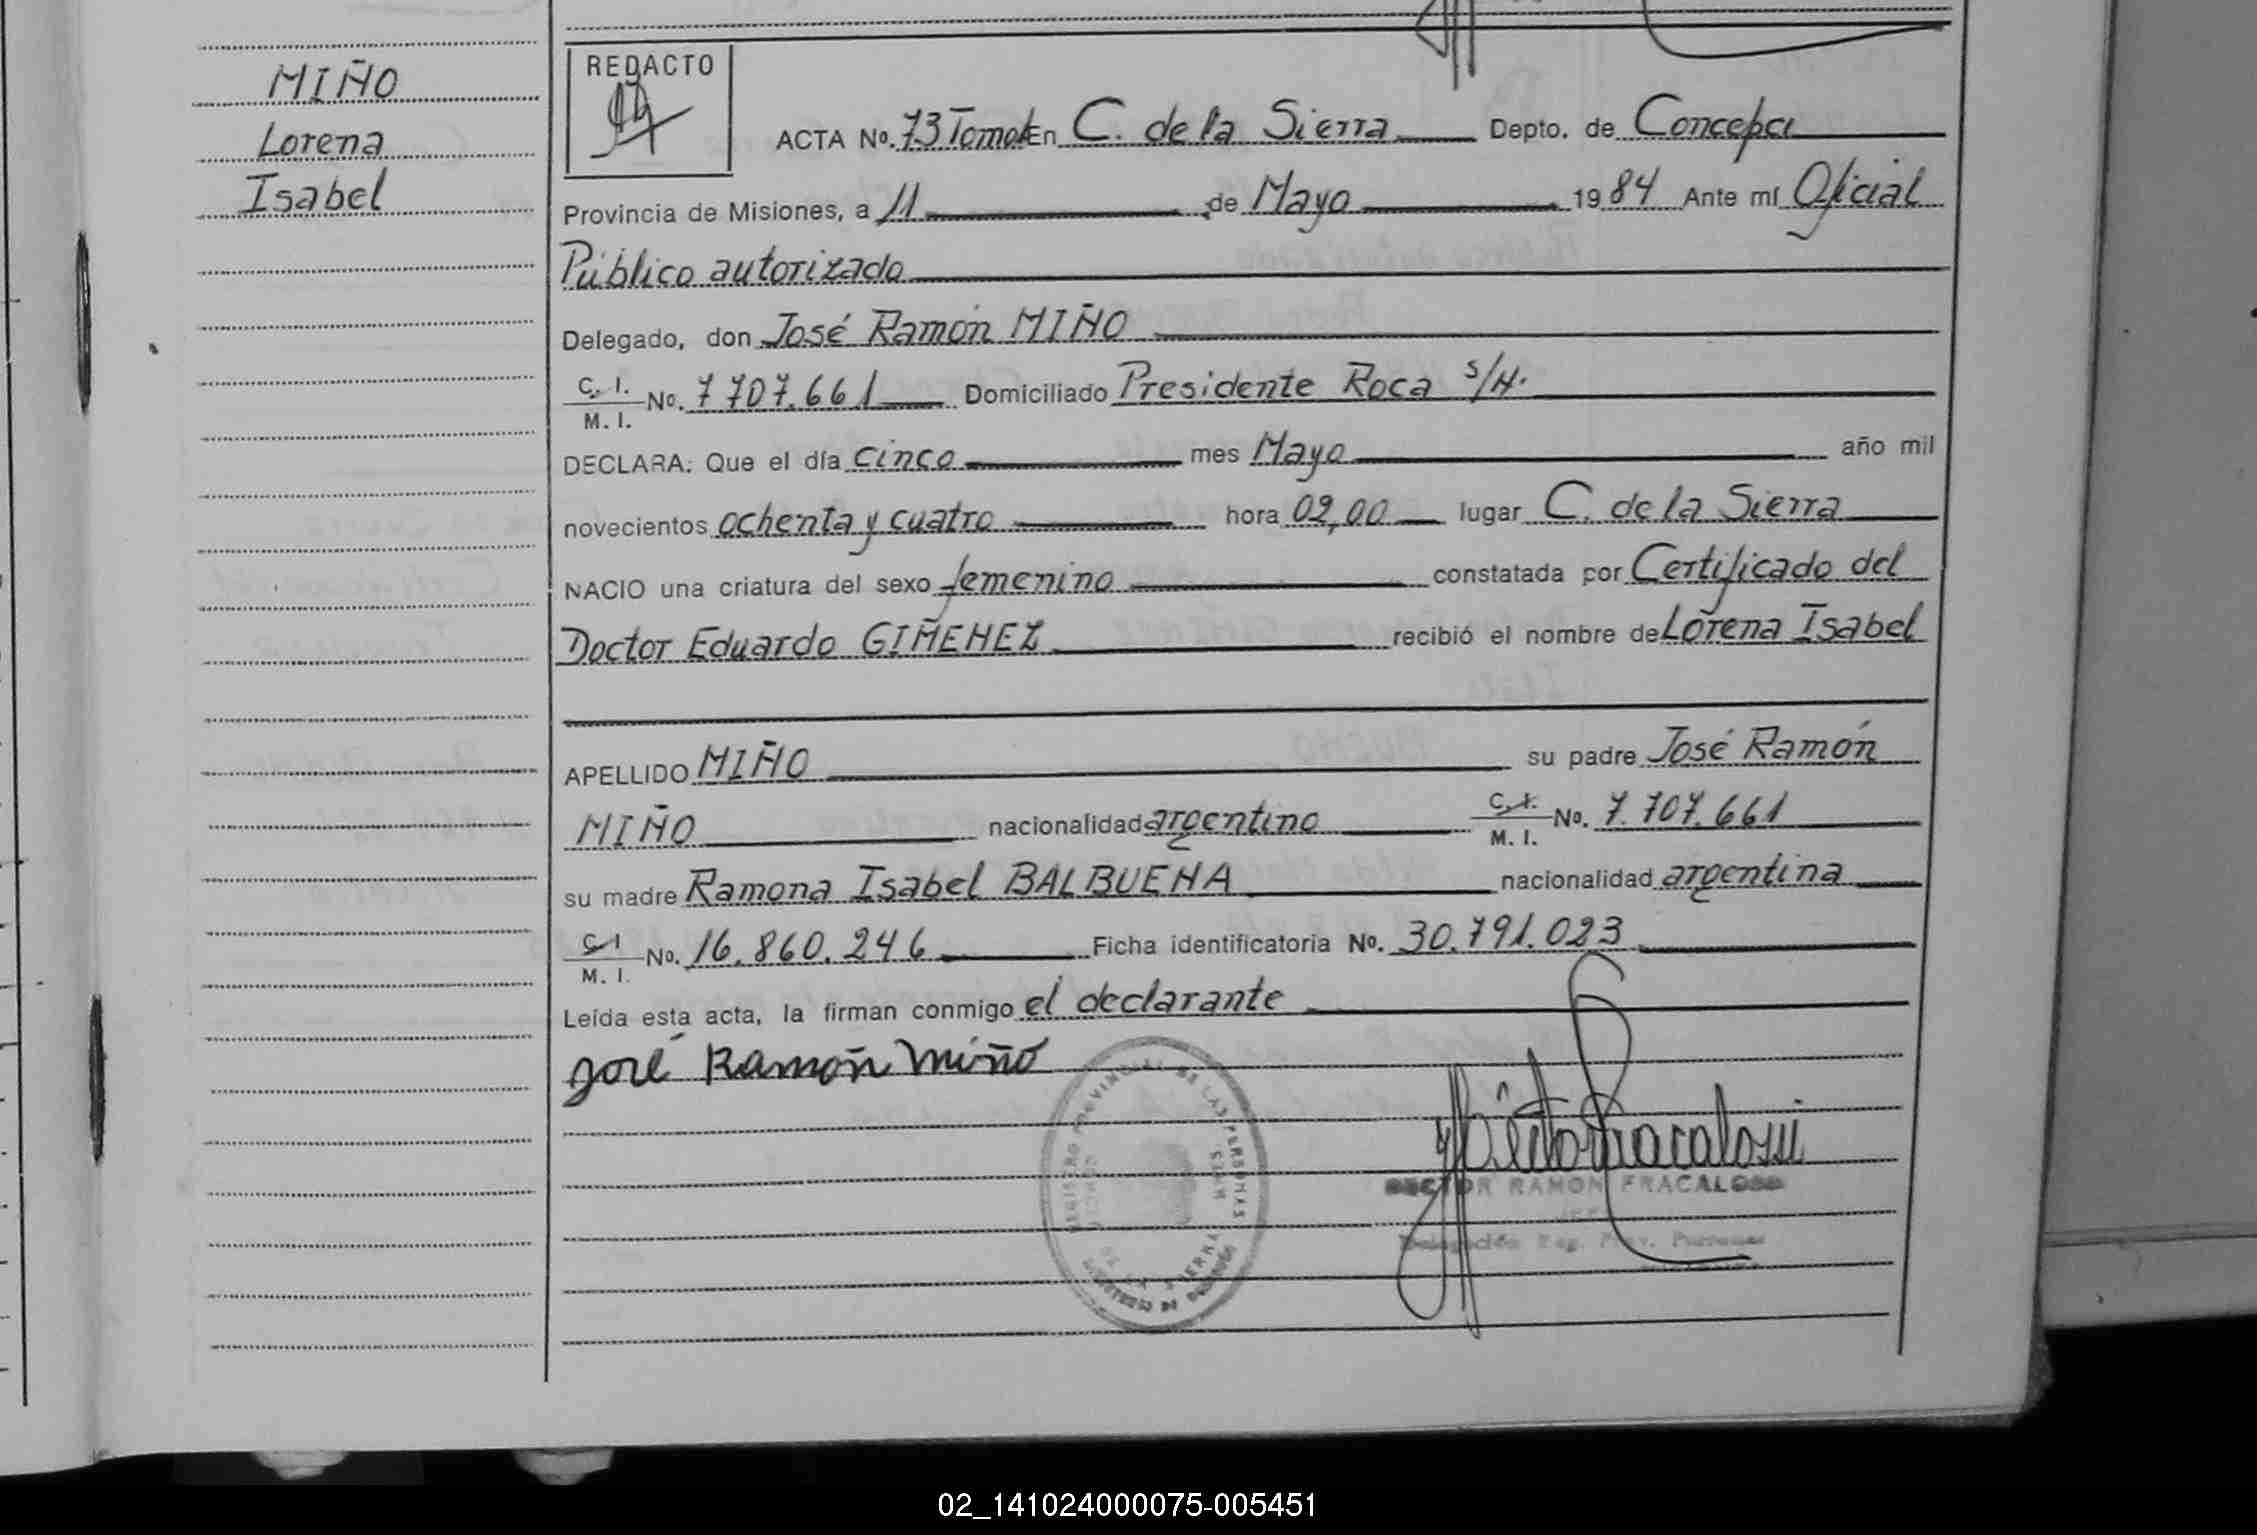 MIÑO
Lorena
Isabel
REDACTO
ACTA No. 73 Tomo En C. de la Sierra Depto. de Concepci
Provincia de Misiones, a 11 de Mayo 1984 Ante mí Oficial
Público autorizado
Delegado, don José Ramón MIÑO
C. I.
M. I. No. 7 707.661 Domiciliado Presidente Roca S/N.
DECLARA: Que el día cinco mes Mayo año mil
novecientos ochenta y cuatro hora 02,00 lugar C. de la Sierra
NACIO una criatura del sexo femenino constatada por Certificado del
Doctor Eduardo GIMENEZ recibió el nombre de Lorena Isabel
APELLIDO MIÑO su padre José Ramón
MIÑO nacionalidad argentino C. I. M. I. No. 7.707.661
su madre Ramona Isabel BALBUENA nacionalidad argentina
C I
M. I. No. 16.860.246 Ficha identificatoria No. 30.791.023
Leída esta acta, la firman conmigo el declarante
José Ramón Miño
REGISTRO PROVINCIAL DE LAS PERSONAS
HECTOR RAMON FRACALOSSI
JEFE
Delegación Reg. Prov. Personas
02_141024000075-005451